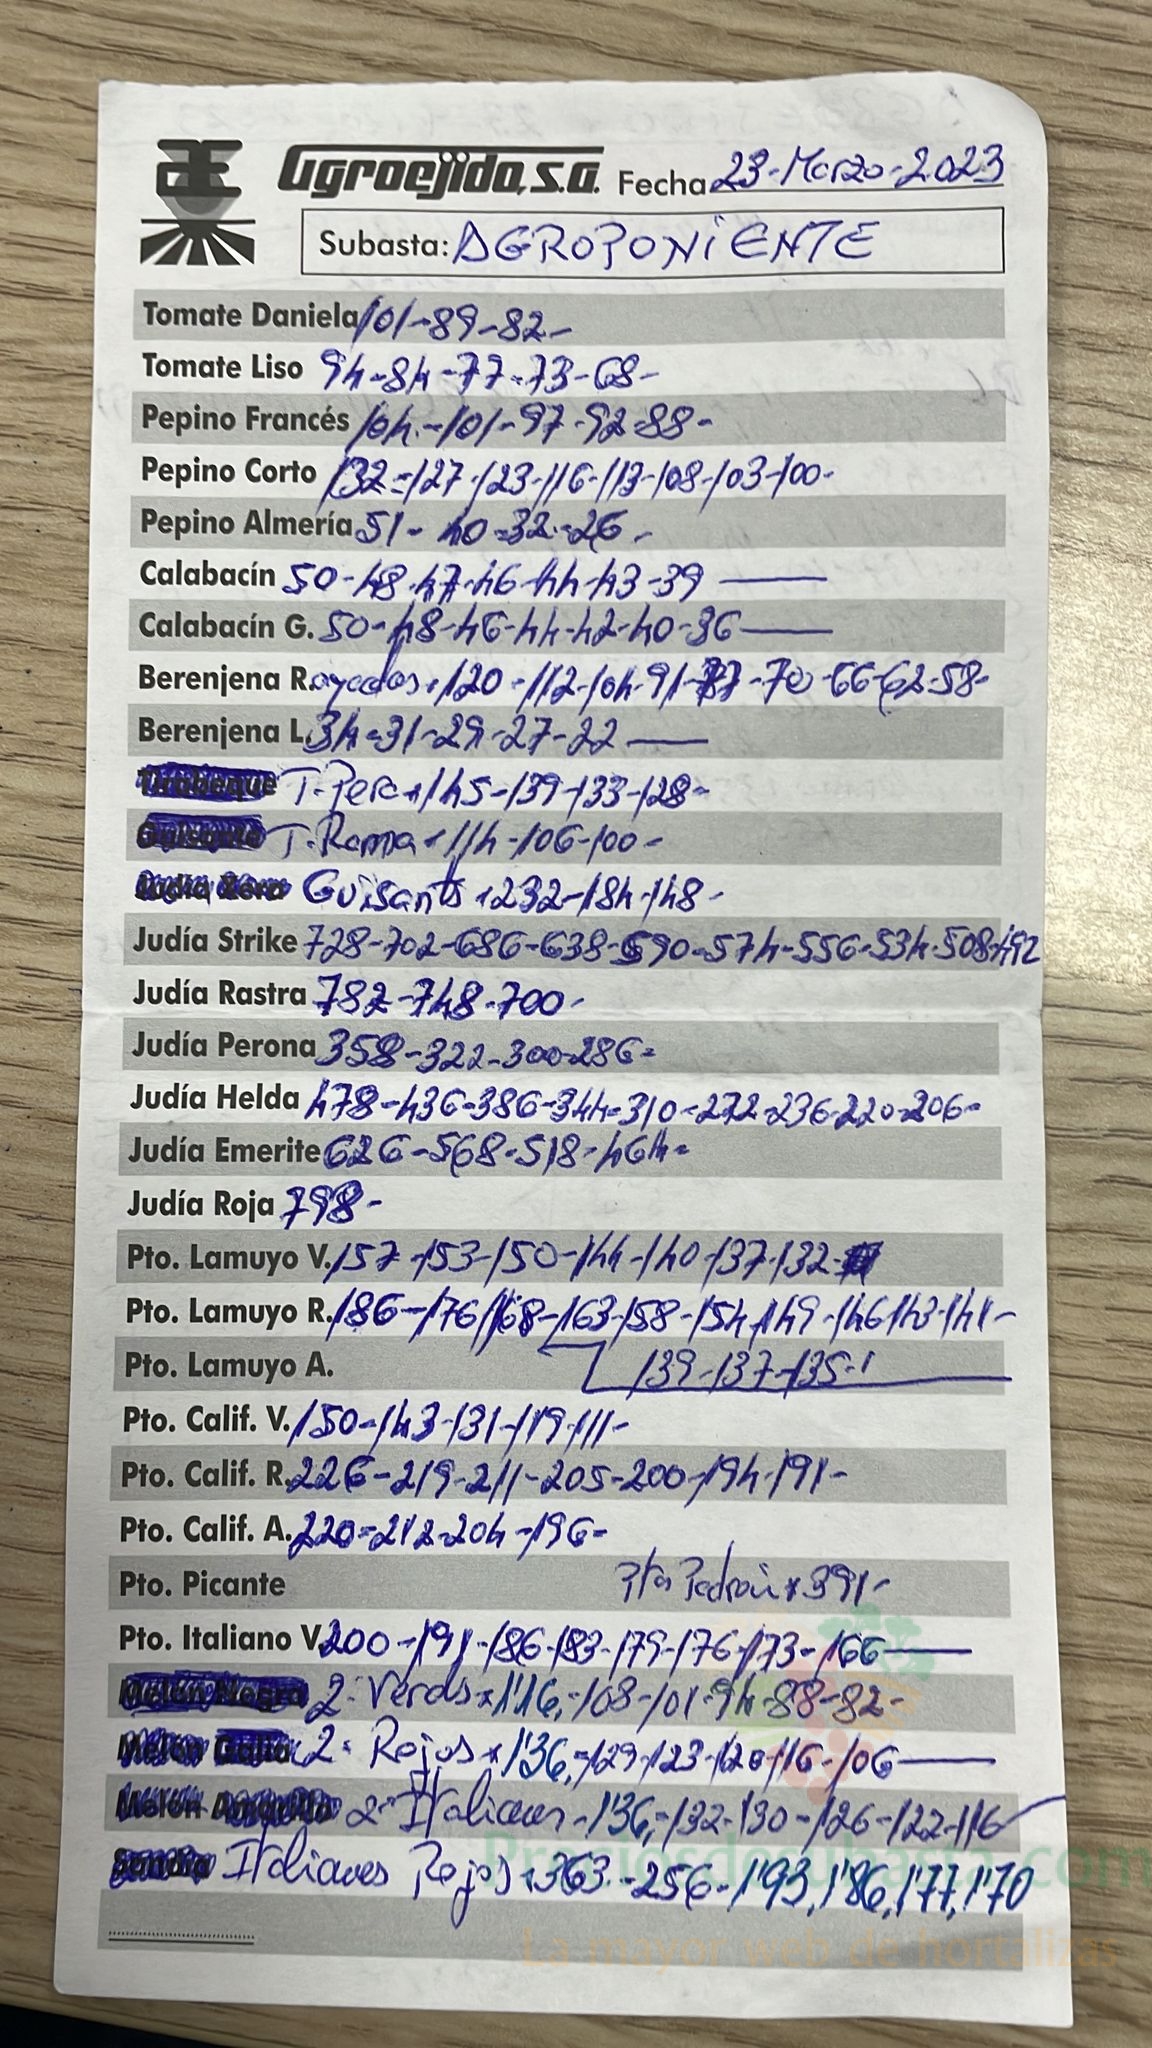 agroejido, s.a. Fecha 23-Marzo-2023
Subasta: AGROPONIENTE
Tomate Daniela 101-89-82-
Tomate Liso 94-84-77-73-68-
Pepino Francés 104-101-97-92-88-
Pepino Corto 132-127-123-116-113-108-103-100-
Pepino Almería 51-40-32-26-
Calabacín 50-48-47-46-44-43-39
Calabacín G. 50-48-46-44-42-40-36
Berenjena Rayadas-120-112-104-91-77-70-66-62-58-
Berenjena L. 34-31-29-27-22
Tirabeque T. Pera 145-139-133-128-
Guisante T. Rama 114-106-100-
Judía Xera Guisants 232-184-148-
Judía Strike 728-702-686-638-590-574-556-534-508-492
Judía Rastra 782-748-700-
Judía Perona 358-322-300-286-
Judía Helda 478-436-386-344-310-272-236-220-206-
Judía Emerite 626-568-518-464-
Judía Roja 798-
Pto. Lamuyo V. 157-153-150-144-140-137-132-
Pto. Lamuyo R. 186-176-168-163-158-154-149-146-143-141-
Pto. Lamuyo A. 139-137-135-
Pto. Calif. V. 150-143-131-119-111-
Pto. Calif. R. 226-219-211-205-200-194-191-
Pto. Calif. A. 220-212-204-196-
Pto. Picante Ptos Padrón 391-
Pto. Italiano V. 200-191-186-183-179-176-173-166
Melón Negro 2ª Verds 1'16,-108-101-94-88-82-
Melón Galia 2ª Rojos 1'36,-129-123-120-116-106
Melón Amarillo 2ª Italianos-1'36,-132-130-126-122-116
Sandía Italianos Rojos 363-256-1'93,1'86,1'77,1'70
Preciosdesubasta.com
La mayor web de hortalizas